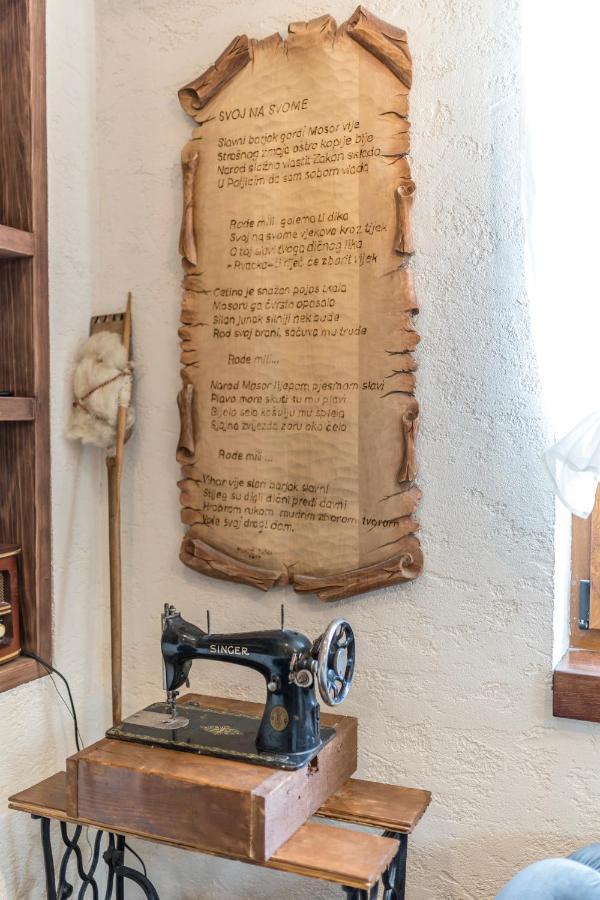 SVOJ NA SVOME
Slavni barjak gordi Mosor vije
Strašnog zmaja oštro koplje bije
Narod složno vlastit Zakon sklada
U Poljicim da sam sobom vlada
Rode mili golema ti dika
Svoj na svome vjekove kroz tijek
O toj slavi tvoga dičnog lika
ti riječ će zborit vijek
Cetina je snažan pojas tkala
Mosoru ga čvrsto opasala
Silan junak silniji nek bude
Rod svoj brani, sačuva mu trude
Rode mili...
Narod Mosor lijepom pjesmom slavi
Plavo more skuti tu mu plavi
Bijela sela košulju mu splela
Sjajna zvijezda zoru oko čela
Rode mili...
Vihor vije stari barjak slavni
Stijeg su digli dični pređi davni
Hrabrom rukom mudrim zborom tvorom
Vole svoj dragi dom.
SINGER